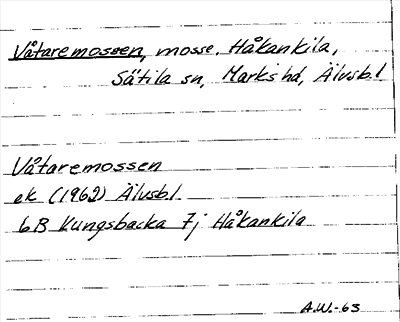 Våtaremossen, mosse. Håkankila,
Sätila sn, Marks hd, Älvsb.l.
Våtaremossen
ek (1962) Älvsb.l.
6B Kungsbacka 7j Håkankila
A.W.-63